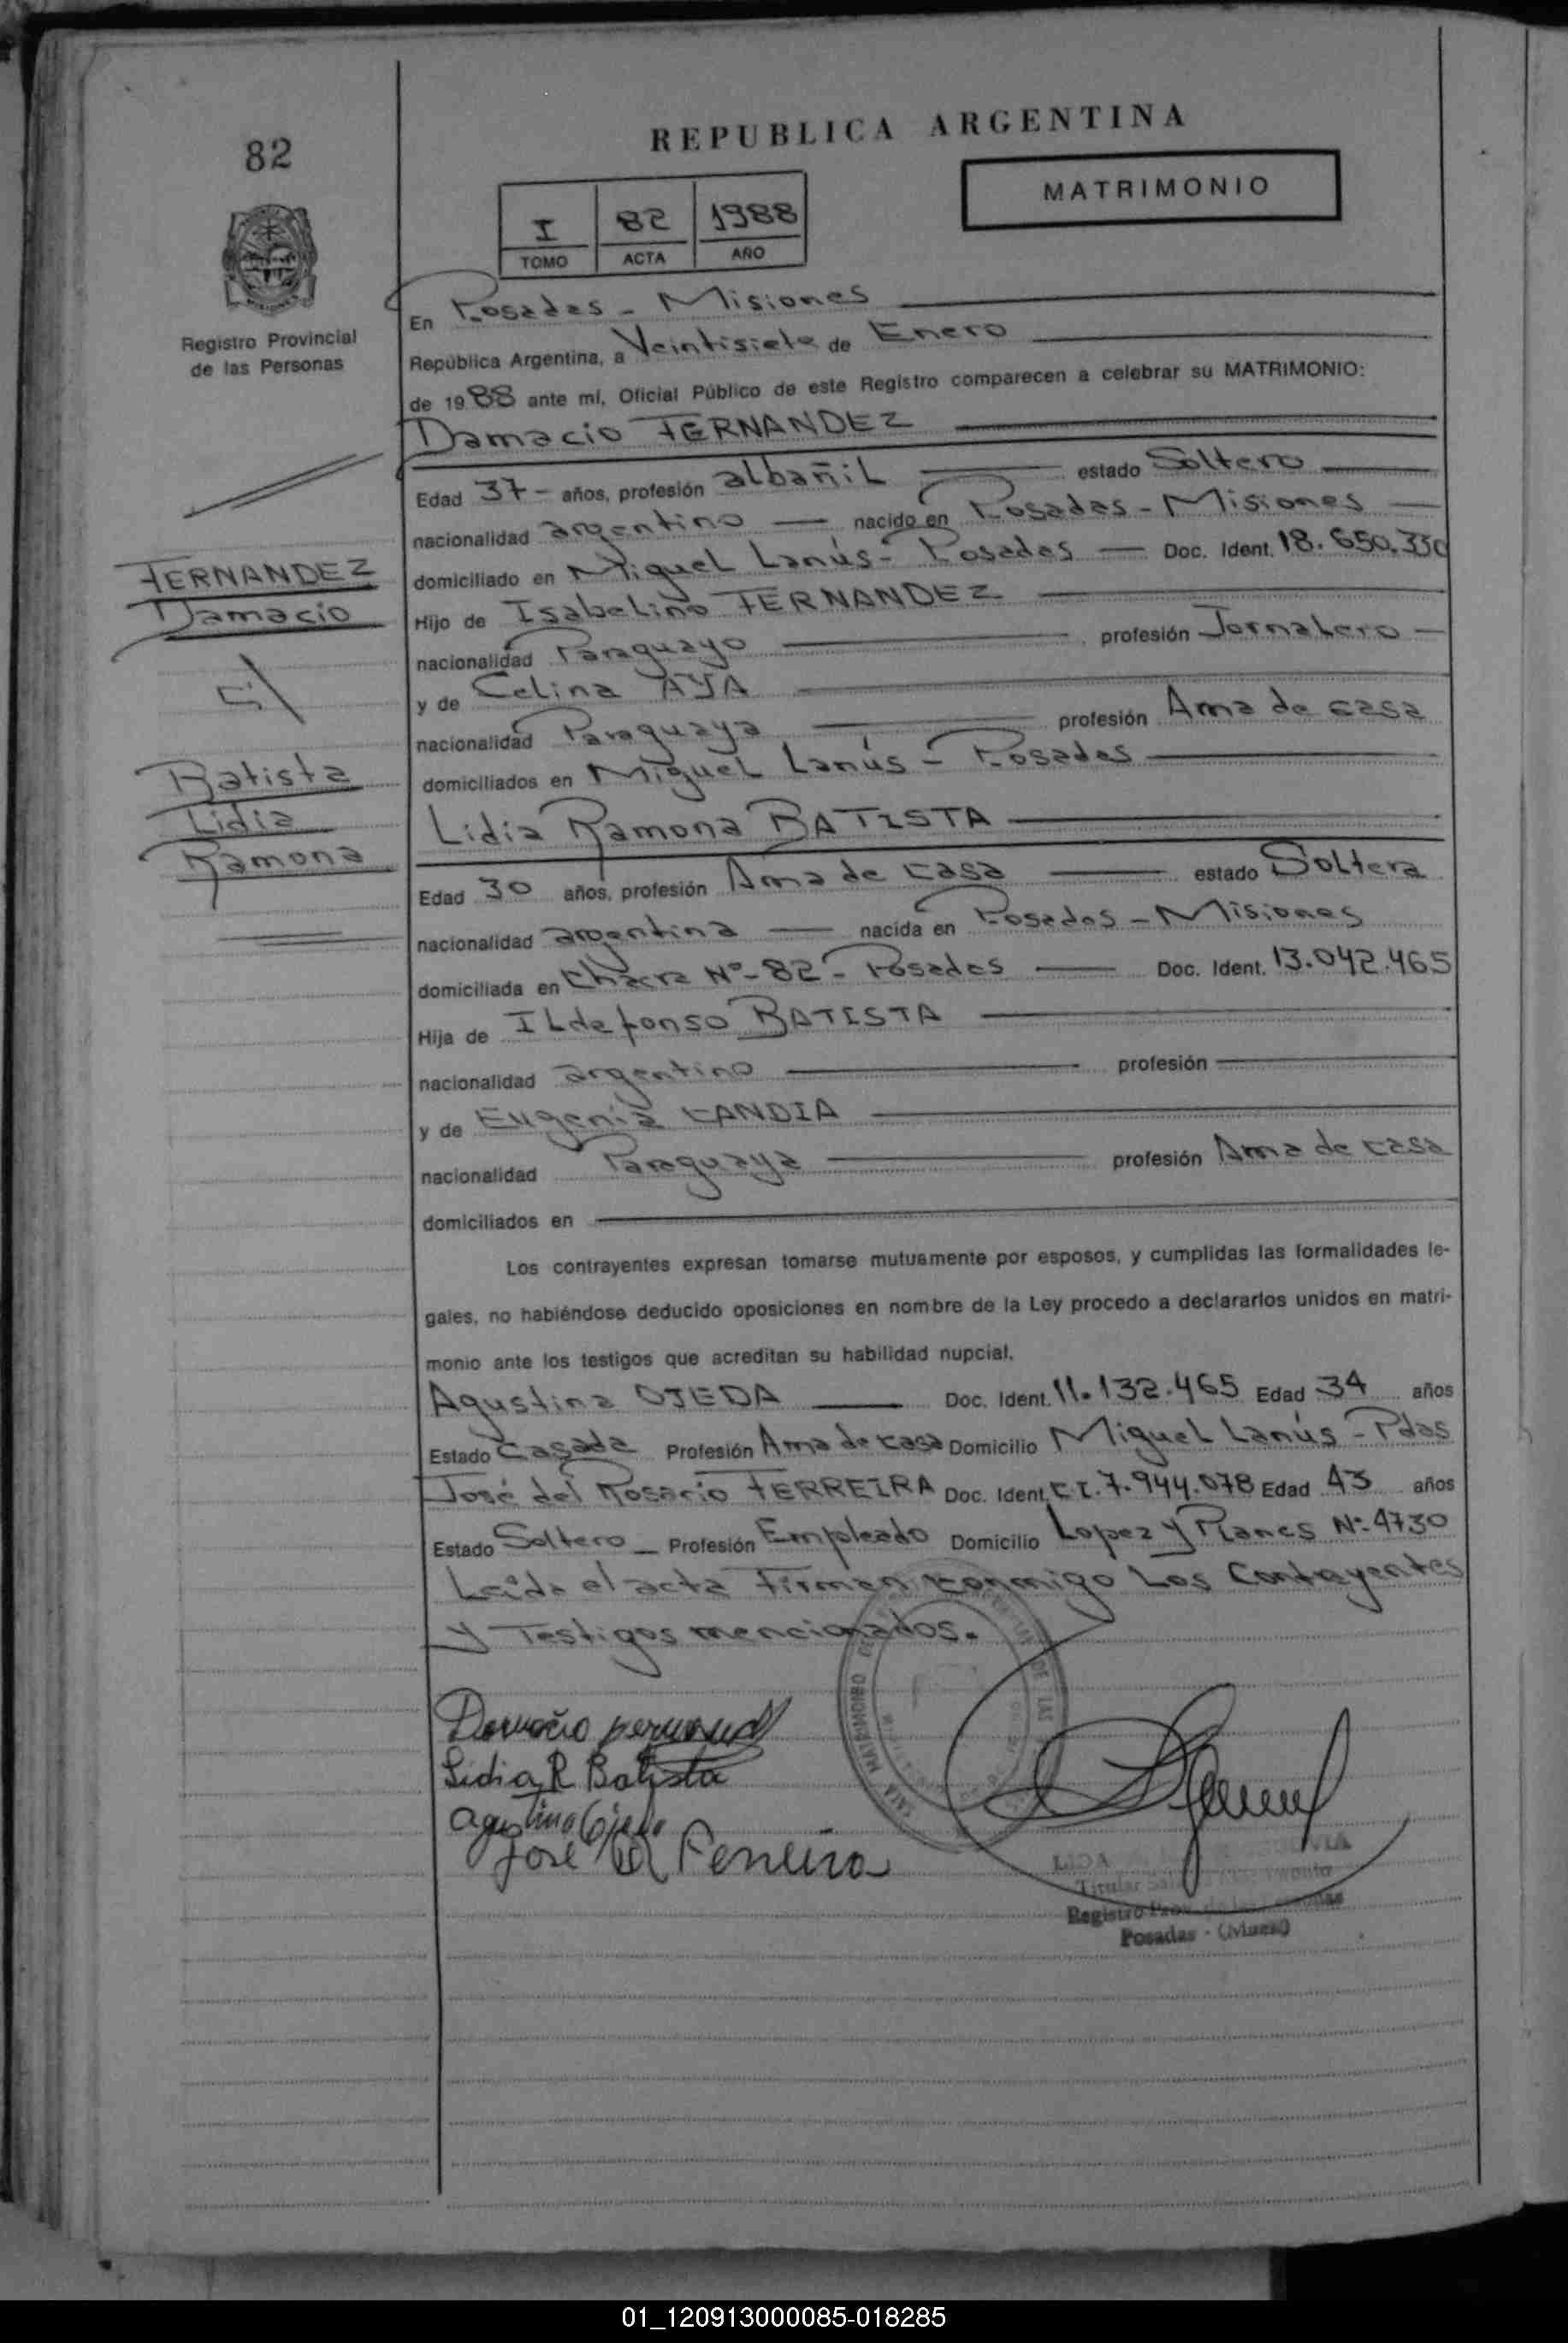 REPUBLICA ARGENTINA
82
MATRIMONIO
I 82 1988
TOMO ACTA AÑO
Registro Provincial
de las Personas
En Posadas - Misiones
República Argentina, a Veintisiete de Enero
de 1988 ante mí, Oficial Público de este Registro comparecen a celebrar su MATRIMONIO:
Damacio FERNANDEZ
Edad 37- años, profesión albañil estado Soltero
nacionalidad argentino nacido en Posadas - Misiones
domiciliado en Miguel Lanús - Posadas Doc. Ident. 18.650.330
FERNANDEZ
Damacio
Hijo de Isabelino FERNANDEZ
nacionalidad Paraguayo profesión Jornalero
y de Celina AYA
nacionalidad Paraguaya profesión Ama de casa
domiciliados en Miguel Lanús - Posadas
Batista
Lidia
Ramona
Lidia Ramona BATISTA
Edad 30 años, profesión Ama de casa estado Soltera
nacionalidad argentina nacida en Posadas - Misiones
domiciliada en Chacra Nº-82 - Posadas Doc. Ident. 13.042.465
Hija de Ildefonso BATISTA
nacionalidad argentino profesión
y de Eugenia CANDIA
nacionalidad Paraguaya profesión Ama de casa
domiciliados en
Los contrayentes expresan tomarse mutuamente por esposos, y cumplidas las formalidades le-
gales, no habiéndose deducido oposiciones en nombre de la Ley procedo a declararlos unidos en matri-
monio ante los testigos que acreditan su habilidad nupcial.
Agustina OJEDA Doc. Ident. 11.132.465 Edad 34 años
Estado Casada Profesión Ama de casa Domicilio Miguel Lanús - Pdas
José del Rosario FERREIRA Doc. Ident. C.I. 7.944.078 Edad 43 años
Estado Soltero Profesión Empleado Domicilio Lopez y Planes Nº 4730
Leída el acta Firman conmigo Los Contayentes
y Testigos mencionados.
Lidia R Batista
Agustina Ojeda
José R Ferreira
SALA MATRIMONIO DE LAS
LIDA
Titular
Registro Prov. de las Personas
Posadas - (Mnes)
01_120913000085-018285